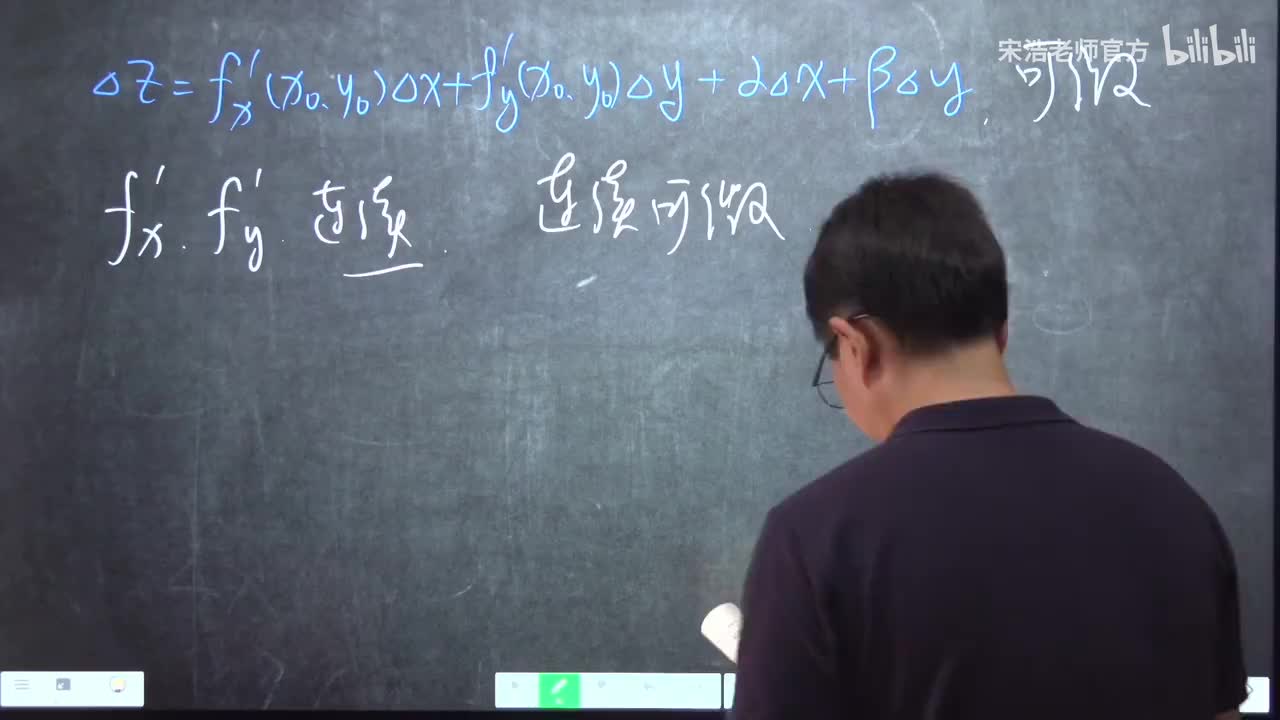 宋浩老师官方 bilibili
△z=f'x(x₀,y₀)△x+f'y(x₀,y₀)△y+α△x+β△y. 可微
f'x. f'y. 连续. 连续可微.